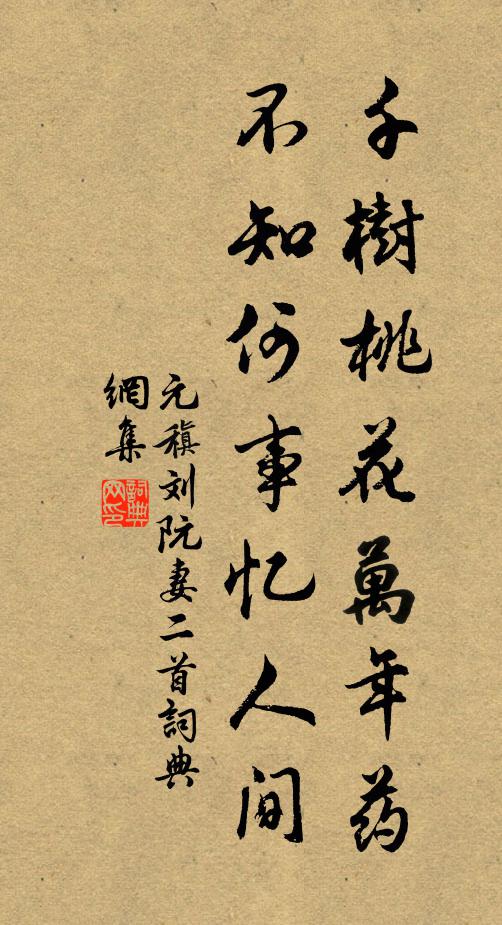 千樹桃花萬年药
不知何事忆人间
元稹刘阮妻二首詞典
網集
詞典
网印